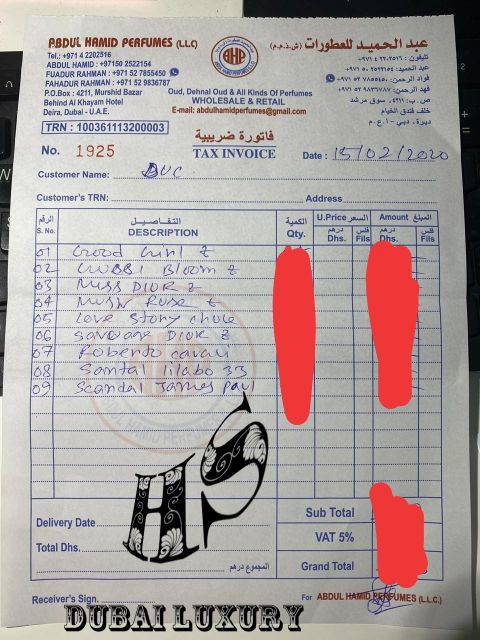 ABDUL HAMID PERFUMES (L.L.C)
Tel.: +971 4 2202516
ABDUL HAMID : +97150 2522154
FUADUR RAHMAN : +971 52 7855450
FAHADUR RAHMAN : +971 52 9836787
P.O.Box : 4211, Murshid Bazar
Behind Al Khayam Hotel
Deira, Dubai - U.A.E.
عبد الحميد للعطورات (ش.ذ.م.م)
تليفون: ٢٢٠٢٥١٦ ٤ ٩٧١+
عبد الحميد: ٢٥٢٢١٥٤ ٥٠ ٩٧١+
فواد الرحمن: ٧٨٥٥٤٥٠ ٥٢ ٩٧١+
فهد الرحمن: ٩٨٣٦٧٨٧ ٥٢ ٩٧١+
ص.ب: ٤٢١١، سوق مرشد
خلف فندق الخيام
ديرة، دبي - ا.ع.م
AHP
Oud, Dehnal Oud & All Kinds Of Perfumes
WHOLESALE & RETAIL
E-mail: abdulhamidperfumes@gmail.com
TRN : 100361113200003
فاتورة ضريبية
No. 1925
TAX INVOICE
Date : 15/02/2020
Customer Name: DUC
Customer's TRN: Address
الرقم التفاصيل الكمية السعر U.Price المبلغ Amount
S. No. DESCRIPTION Qty. درهم Dhs. فلس Fils درهم Dhs. فلس Fils
01 Good Gurl Z
02 Bloom Z
03 Miss DIOR Z
04 Rose Z
05 Love Story
06 DIOR Z
07 Roberto cavali
08 Santal 33
09 Scandal James Paul
ABDUL HAMID PERFUMES
HS
Delivery Date
Total Dhs.
المجموع درهم
Sub Total
VAT 5%
Grand Total
Receiver's Sign.
For ABDUL HAMID PERFUMES (L.L.C.)
DUBAI LUXURY